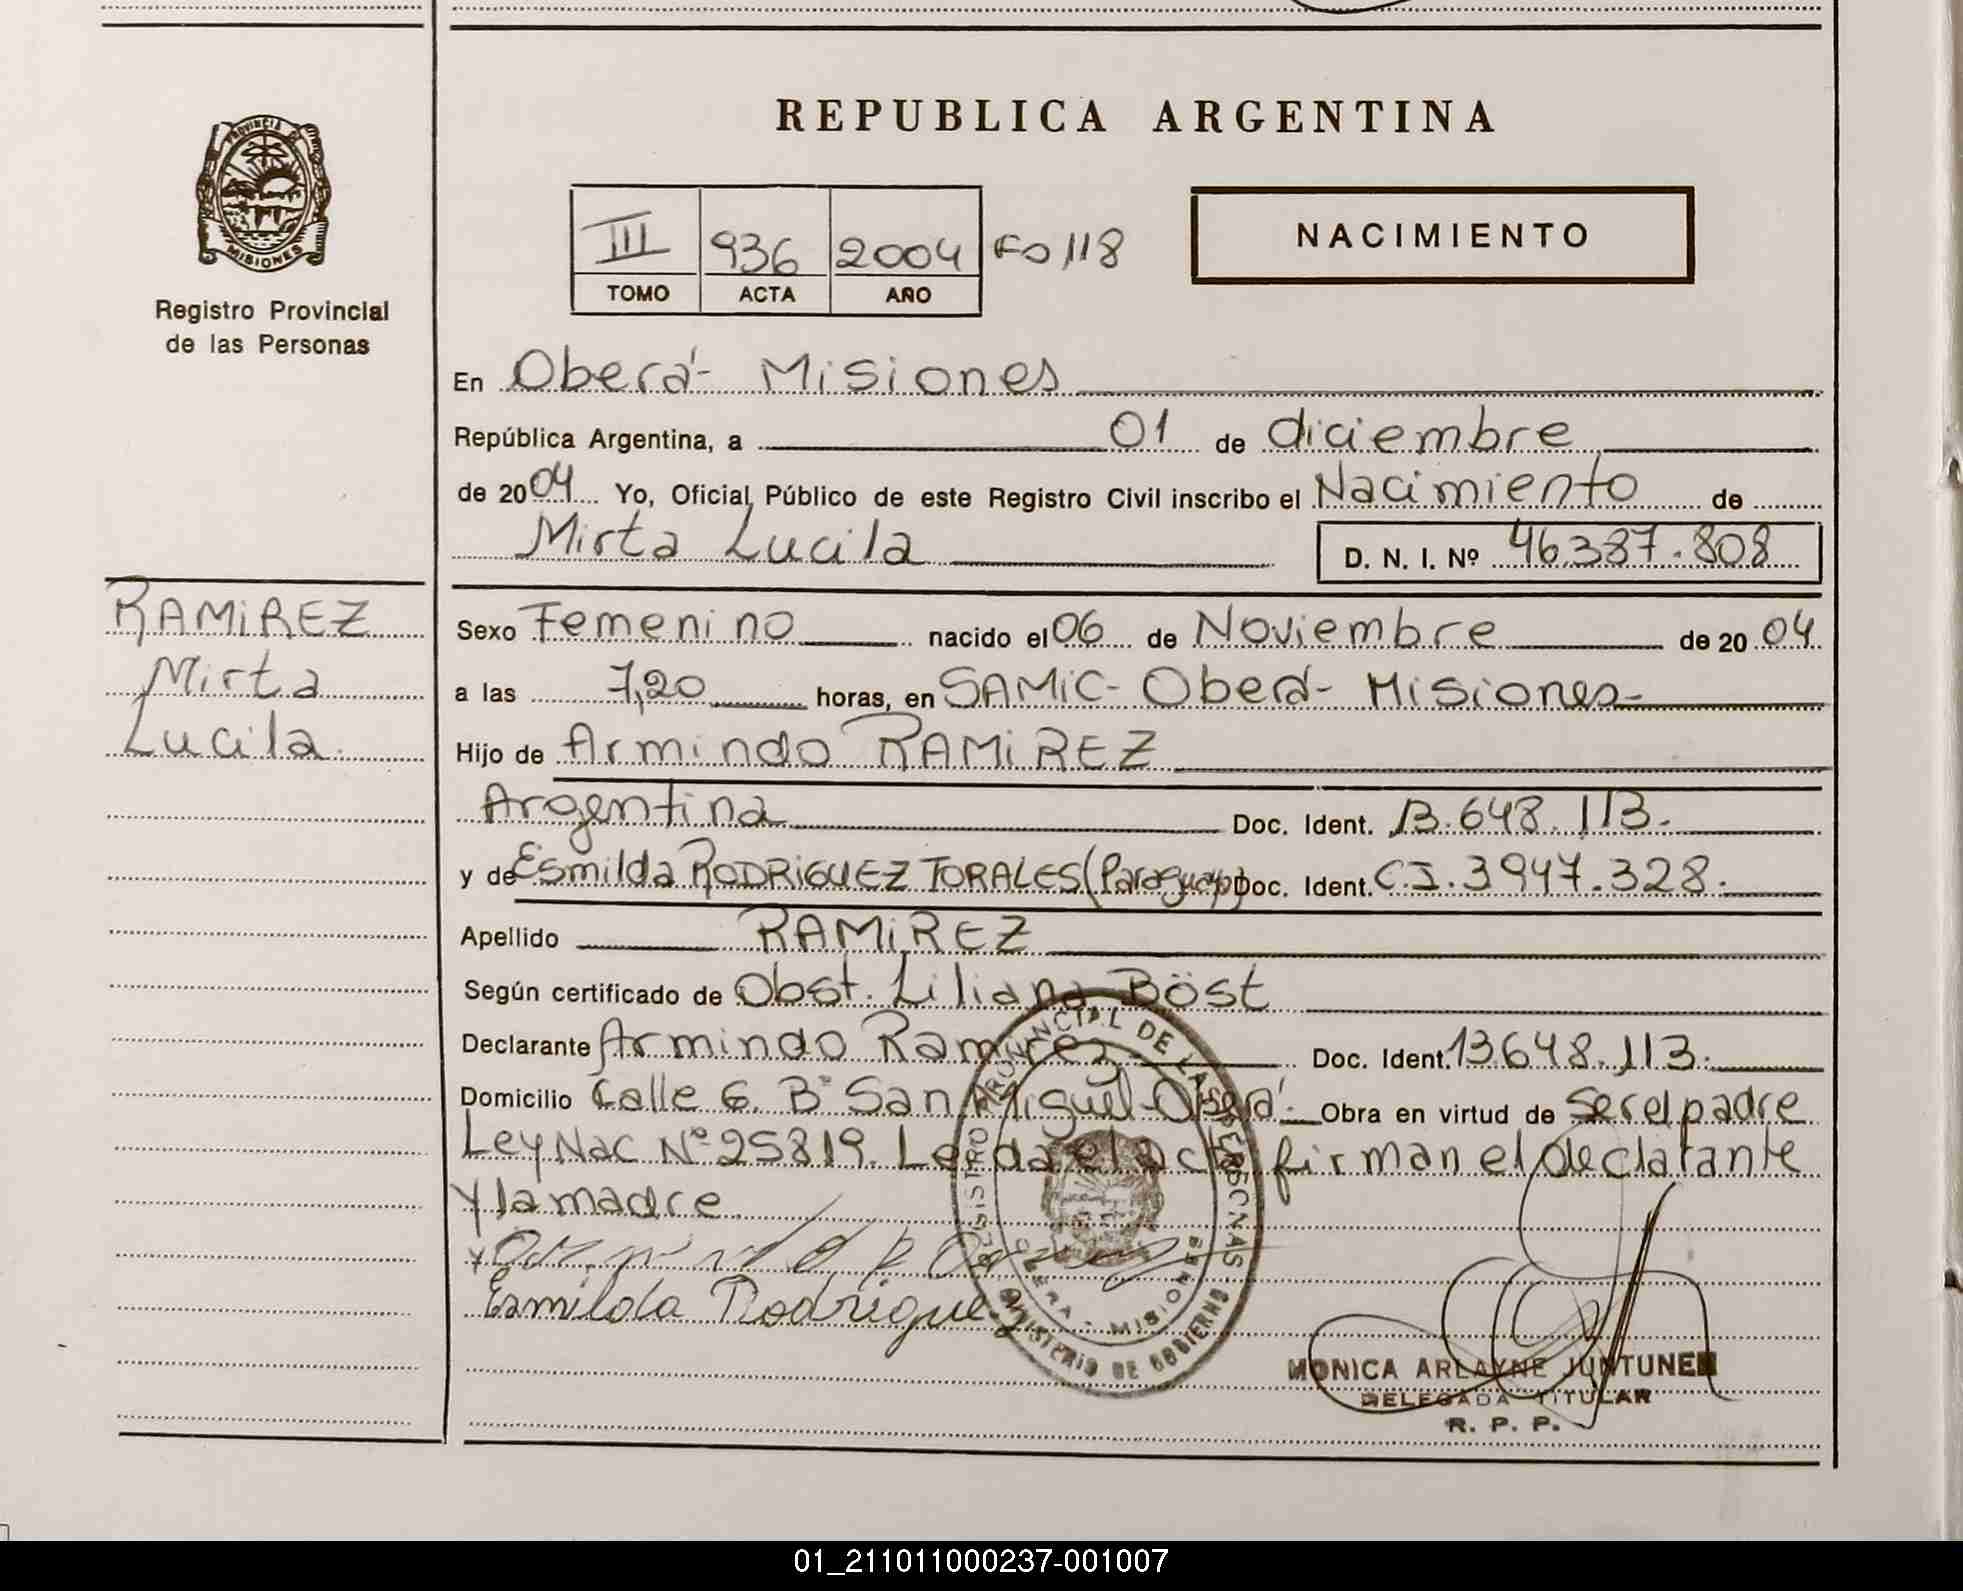 REPUBLICA ARGENTINA
PROVINCIA DE
MISIONES
Registro Provincial
de las Personas
III 936 2004 Fo 118
TOMO ACTA AÑO
NACIMIENTO
En Oberá - Misiones
República Argentina, a 01 de diciembre
de 2004 Yo, Oficial Público de este Registro Civil inscribo el Nacimiento de
Mirta Lucila D. N. I. Nº 46.387.808
RAMiREZ
Mirta
Lucila
Sexo Femenino nacido el 06 de Noviembre de 2004
a las 7,20 horas, en SAMiC - Oberá - Misiones -
Hijo de Armindo RAMiREZ
Argentina Doc. Ident. 13.648.113.
y de Esmilda RODRiGUEZ TORALES (Paraguay) Doc. Ident. C.I. 3947.328.
Apellido RAMiREZ
Según certificado de Obst. Liliana Böst
Declarante Armindo Ramirez Doc. Ident. 13648.113.
Domicilio Calle 6. Bº San Miguel - Oberá - Obra en virtud de ser el padre
Ley Nac Nº 25819. Leida el acta firman el declarante
y la madre
Esmilda Rodriguez
REGISTRO PROVINCIAL DE LAS PERSONAS
OBERA - MISIONES
MINISTERIO DE GOBIERNO
MONICA ARLAYNE JUNTUNEN
DELEGADA TITULAR
R. P. P.
01_211011000237-001007